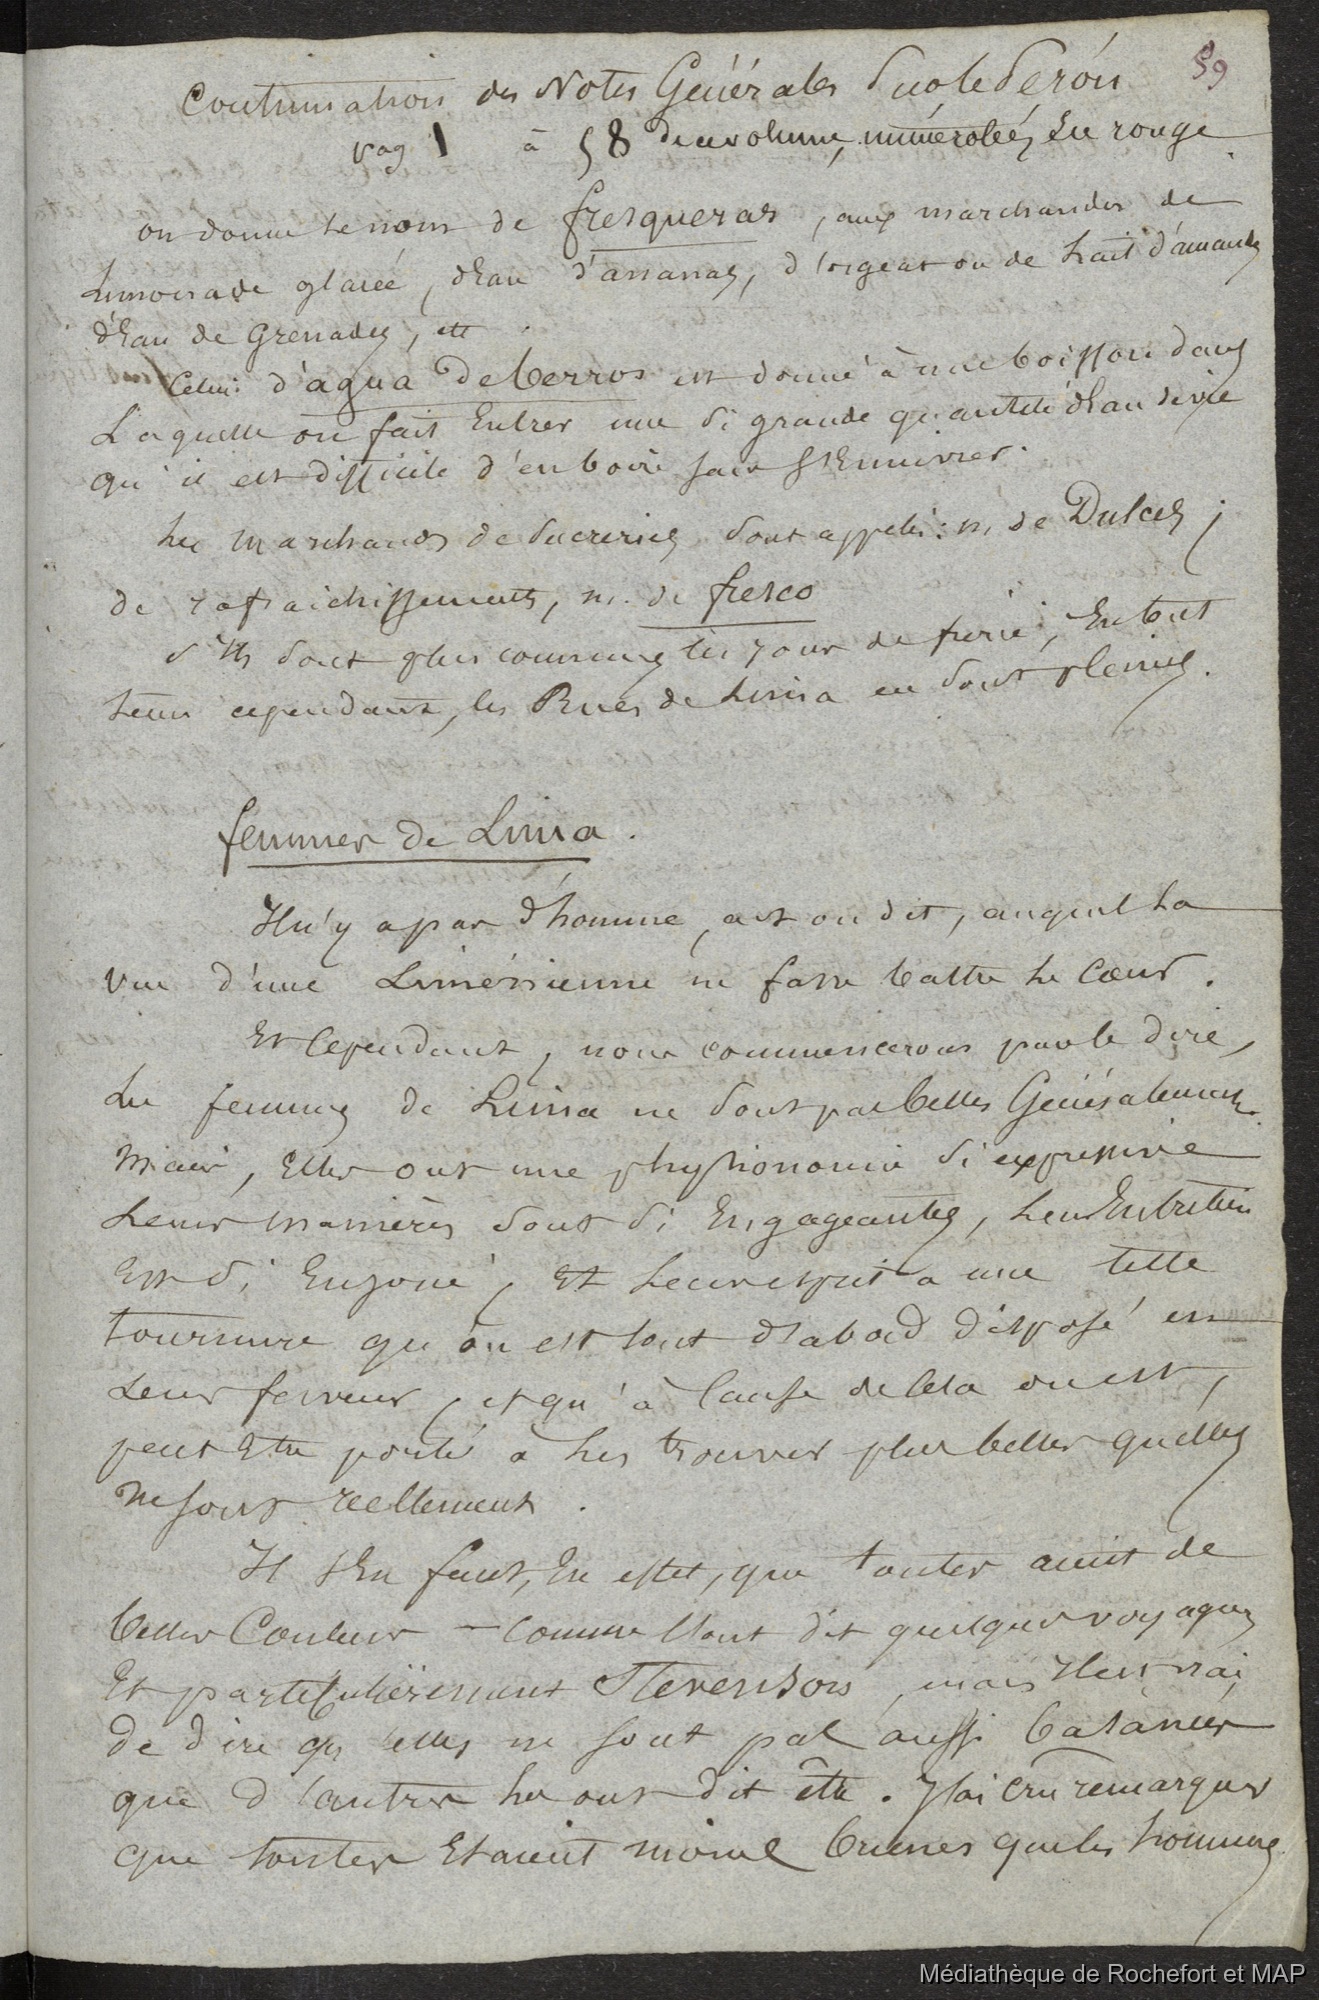 59
Continuation des Notes Générales sur le Pérou
pag 1 à 58 de ce volume, numérotées en rouge
on donne le nom de fresqueras, aux marchandes de
Limonade glacée, d'Eau d'ananas, d'orgeat ou de Lait d'amandes
d'Eau de Grenades, etc
Celui d'agua de berros est donné à une boisson dans
Laquelle on fait Entrer une si grande quantité d'Eau de vie
qu'il est difficile d'en boire sans s'Ennivrer.
Les marchands de sucreries sont appelés : m. de Dulces ;
de rafraichissements, m. de fresco
s'Ils sont plus communs les jours de férié, En tout
tems cependant, les Rues de Lima en sont pleines.
femmes de Lima.
Il n'y a pas d'homme, a-t-on dit, auquel La
vue d'une Liménienne ne fasse battre Le Cœur.
Et Cependant, nous commencerons par le dire,
Les femmes de Lima ne sont pas belles Généralement.
Mais, Elles ont une physionomie si expressive
Leurs manières sont si Engageantes, Leur Entretien
Est si Enjoué, Et Leur esprit a une telle
tournure qu'on est tout d'abord disposé en
Leur faveur, et qu'à Cause de Cela on est,
peut Etre porté a Les trouver plus belles qu'elles
ne sont reellement.
Il s'En faut, En effet, que toutes aient de
belles Couleurs – Comme l'ont dit quelques voyageurs
Et particulièrement Stevenson, mais Il est vrai
de dire qu'elles ne sont pas aussi basanées
que d'autres Les ont dit être. J'ai Cru remarquer
que toutes Etaient moins brunes que les hommes
Médiathèque de Rochefort et MAP